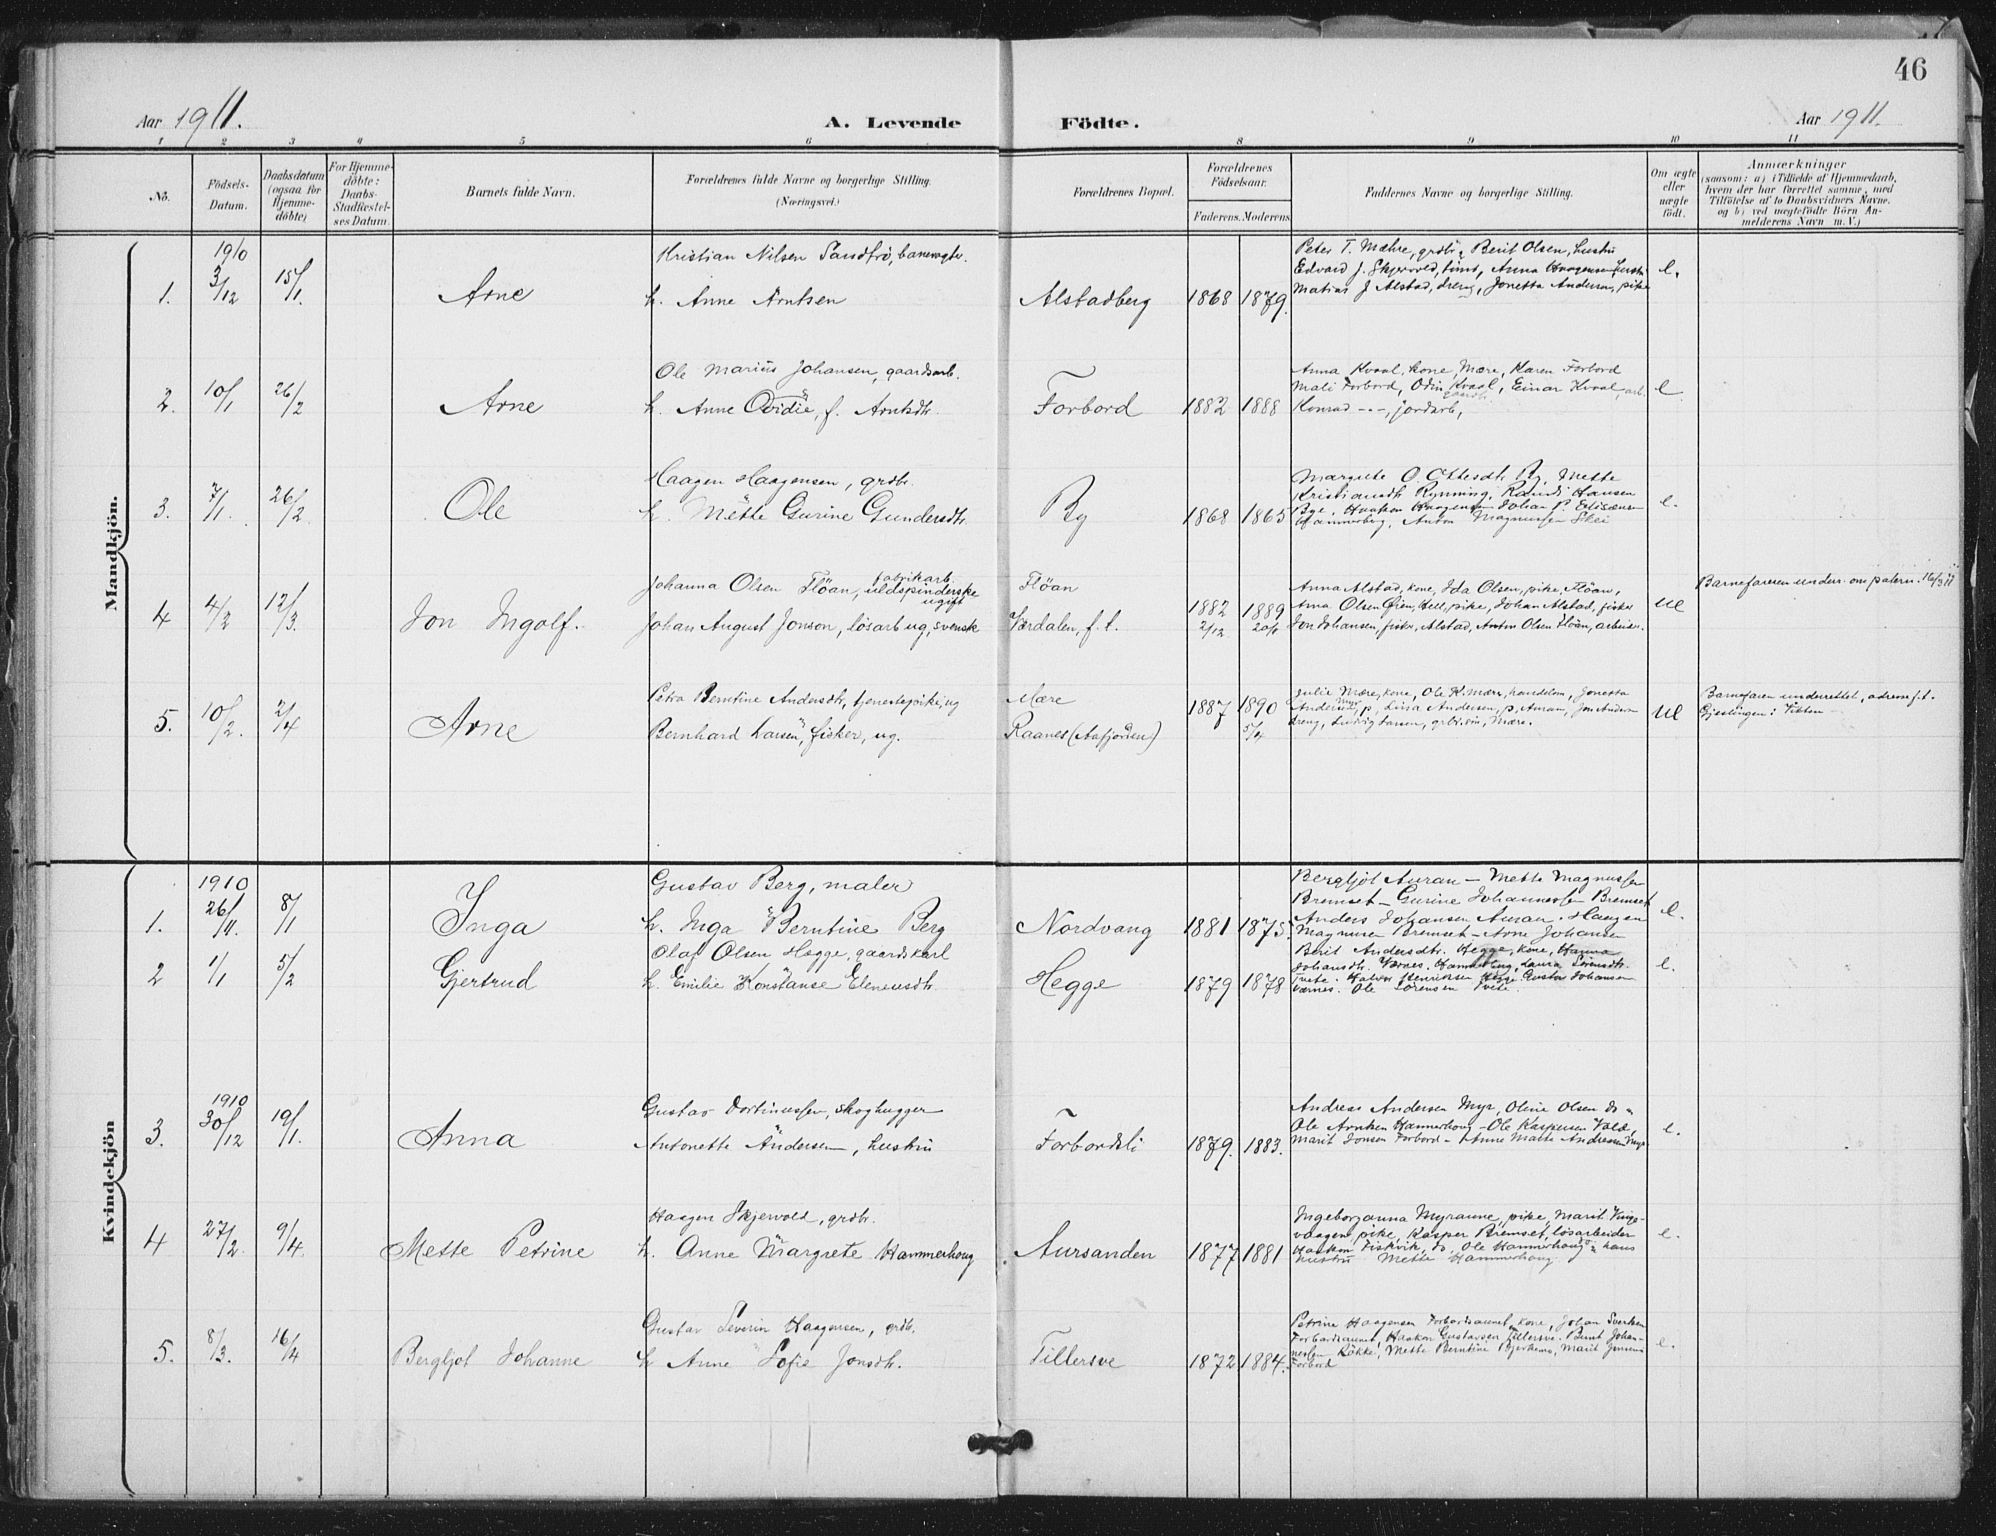 46
Aar 1911. A. Levende Födte. Aar 1911.
1 2 3 4 5 6 8 9 10 11
No. Födsels-Datum. Daabsdatum (ogsaa for Hjemmedöbte) For Hjemmedöbte: Daabs-Stadfæstelses Datum. Barnets fulde Navn. Forældrenes fulde Navne og borgerlige Stilling. (Næringsvei.) Forældrenes Bopæl. Forældrenes Födselsaar. Faderens. Moderens. Faddernes Navne og borgerlige Stilling. Om ægte eller uægte födt. Anmærkninger
(saasom: a) i Tilfælde af Hjemmedaab,
hvem der har forrettet samme, med
Tilföielse af to Daabsvidners Navne.
og b) ved uægtefödte Börn An-
melderens Navn m. V.)
Mandkjön.
1910
1. 3/12 15/1. Arne
Kristian Nilsen Sandfrö, banevogter.
h. Anne Arntsen
Alstadberg 1868 1879.
Peter T. Mæhre, grdbr, Berit Olsen, hustru
Edvard J. Skjervold, Anna Haagensen hustr.
Matias J Alstad, dreng, Jonetta Andersen, pike
e.
2. 10/1 26/2 Arne
Ole Marius Johansen, gaardsarb.
h. Anne Ovidie, f. Arntsdtr.
Forbord 1882 1888
Anna Kvaal, kone, Mære, Karen Forbord
Mali Forbord, Odin Kvaal, Einar Kvaal, arb.
Konrad - - -, jordarb,
e
3. 7/1. 26/2. Ole
Haagen Haagensen, grdbr.
h. Mette Gurine Gundersdtr.
By 1868 1865
Margrete O. Ottesdtr By, Mette
Kristiansdtr Rynning, Randi Hansen
Bye, Haakon Haagensen Johan P Ediseusen
Hammerberg, Anton Magnussen Skei
e.
4 4/2 12/3. Jon Ingolf.
Johanna Olsen Flöan, fabrikarb. uldspinderske
ugift
Johan August Jonson, lösarb ug, svenske
Flöan
Værdalen, f. t.
1882 1889
2/12 20/1
Anna Alstad, kone, Ida Olsen, pike, Flöan,
Anna Olsen Öien, Hell, pike, Johan Alstad, fisker
Jon Johansen, fisker, Alstad, Anton Olsen Flöan, arbeider.
ue
Barnefaren underr. om patern. 16/3 11
5. 10/2. 2/4 Arne
Petra Berntine Andersdtr, tjenestepike, ug
Bernhard Larsen, fisker, ug.
Mære
Raanes (Aafjorden)
1887 1890
5/4
Julie Mære, kone, Ole K. Mære, handelsm, Jonetta
Andersen, p, Lisa Andersen, p, Auran, Jon Andersen
dreng, Ludvig Larsen, grbr.sön, Mære.
ue
Barnefaren underrettet, adresse f. t.
Gjeslingen i Vikten
Kvindekjön
1910
1. 26/11. 8/1 Inga
Gustav Berg, maler
h. Inga Berntine Berg
Nordvang 1881 1875.
Bergljot Auran - Mette Magnussen
Bremset - Gurine Johannessen Bremset
Anders Johansen Auran. Haagen
Magnussen Bremset - Arne Johansen
e.
2 1/1 5/2 Gjertrud
Olaf Olsen Hegge, gaardskarl
h. Emilie Konstanse Eleneusdtr.
Hegge 1879 1878
Berit Andersdtr. Hegge, kone, Hanna
Johansdtr. Værnes. Hammerberg, Laura Sörensdtr.
Tvete. Halvor Henriksen Hegge. Gustav Johansen
Værnes. Ole Sörensen Tvete.
e.
1910
3. 30/12 19/1. Anna
Gustav Dortinussen, skoghugger
Antonette Andersen, hustru
Forbordsli 1879. 1883.
Andreas Andersen Myr, Oline Olsen do
Ole Arntsen Hammerhoug - Ole Kaspersen Vold,
Marit Jonsen Forbord - Anne Matte Andreasen Myr
e.
4 27/2. 9/4. Mette Petrine
Haagen Skjervold, grdbr.
h. Anne Margrete Hammerhoug
Aursanden 1877 1881
Ingeborganna Myraune, pike, Marit Vinge-
vaagen, pike, Kasper Bremset, lösarbeider
Haakon Fiskvik, do, Ole Hammerhoug hans
hustru Mette Hammerhoug
e.
5. 8/3. 16/4 Bergljot Johanne
Gustav Severin Haagensen, grdb,
h Anne Sofie Jonsdtr.
Tillersve 1872 1884.
Petrine Haagensen Forbordsaunet, kone, Johan Sverken
Forbordsaunet, Haakon Gustavsen Tillersve. Bernt Johan-
nessen Rökke, Mette Berntine Bjerkemo, Marit Jensen
Forbord
e.